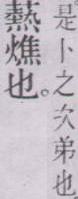 是卜之次弟也
爇燋也。